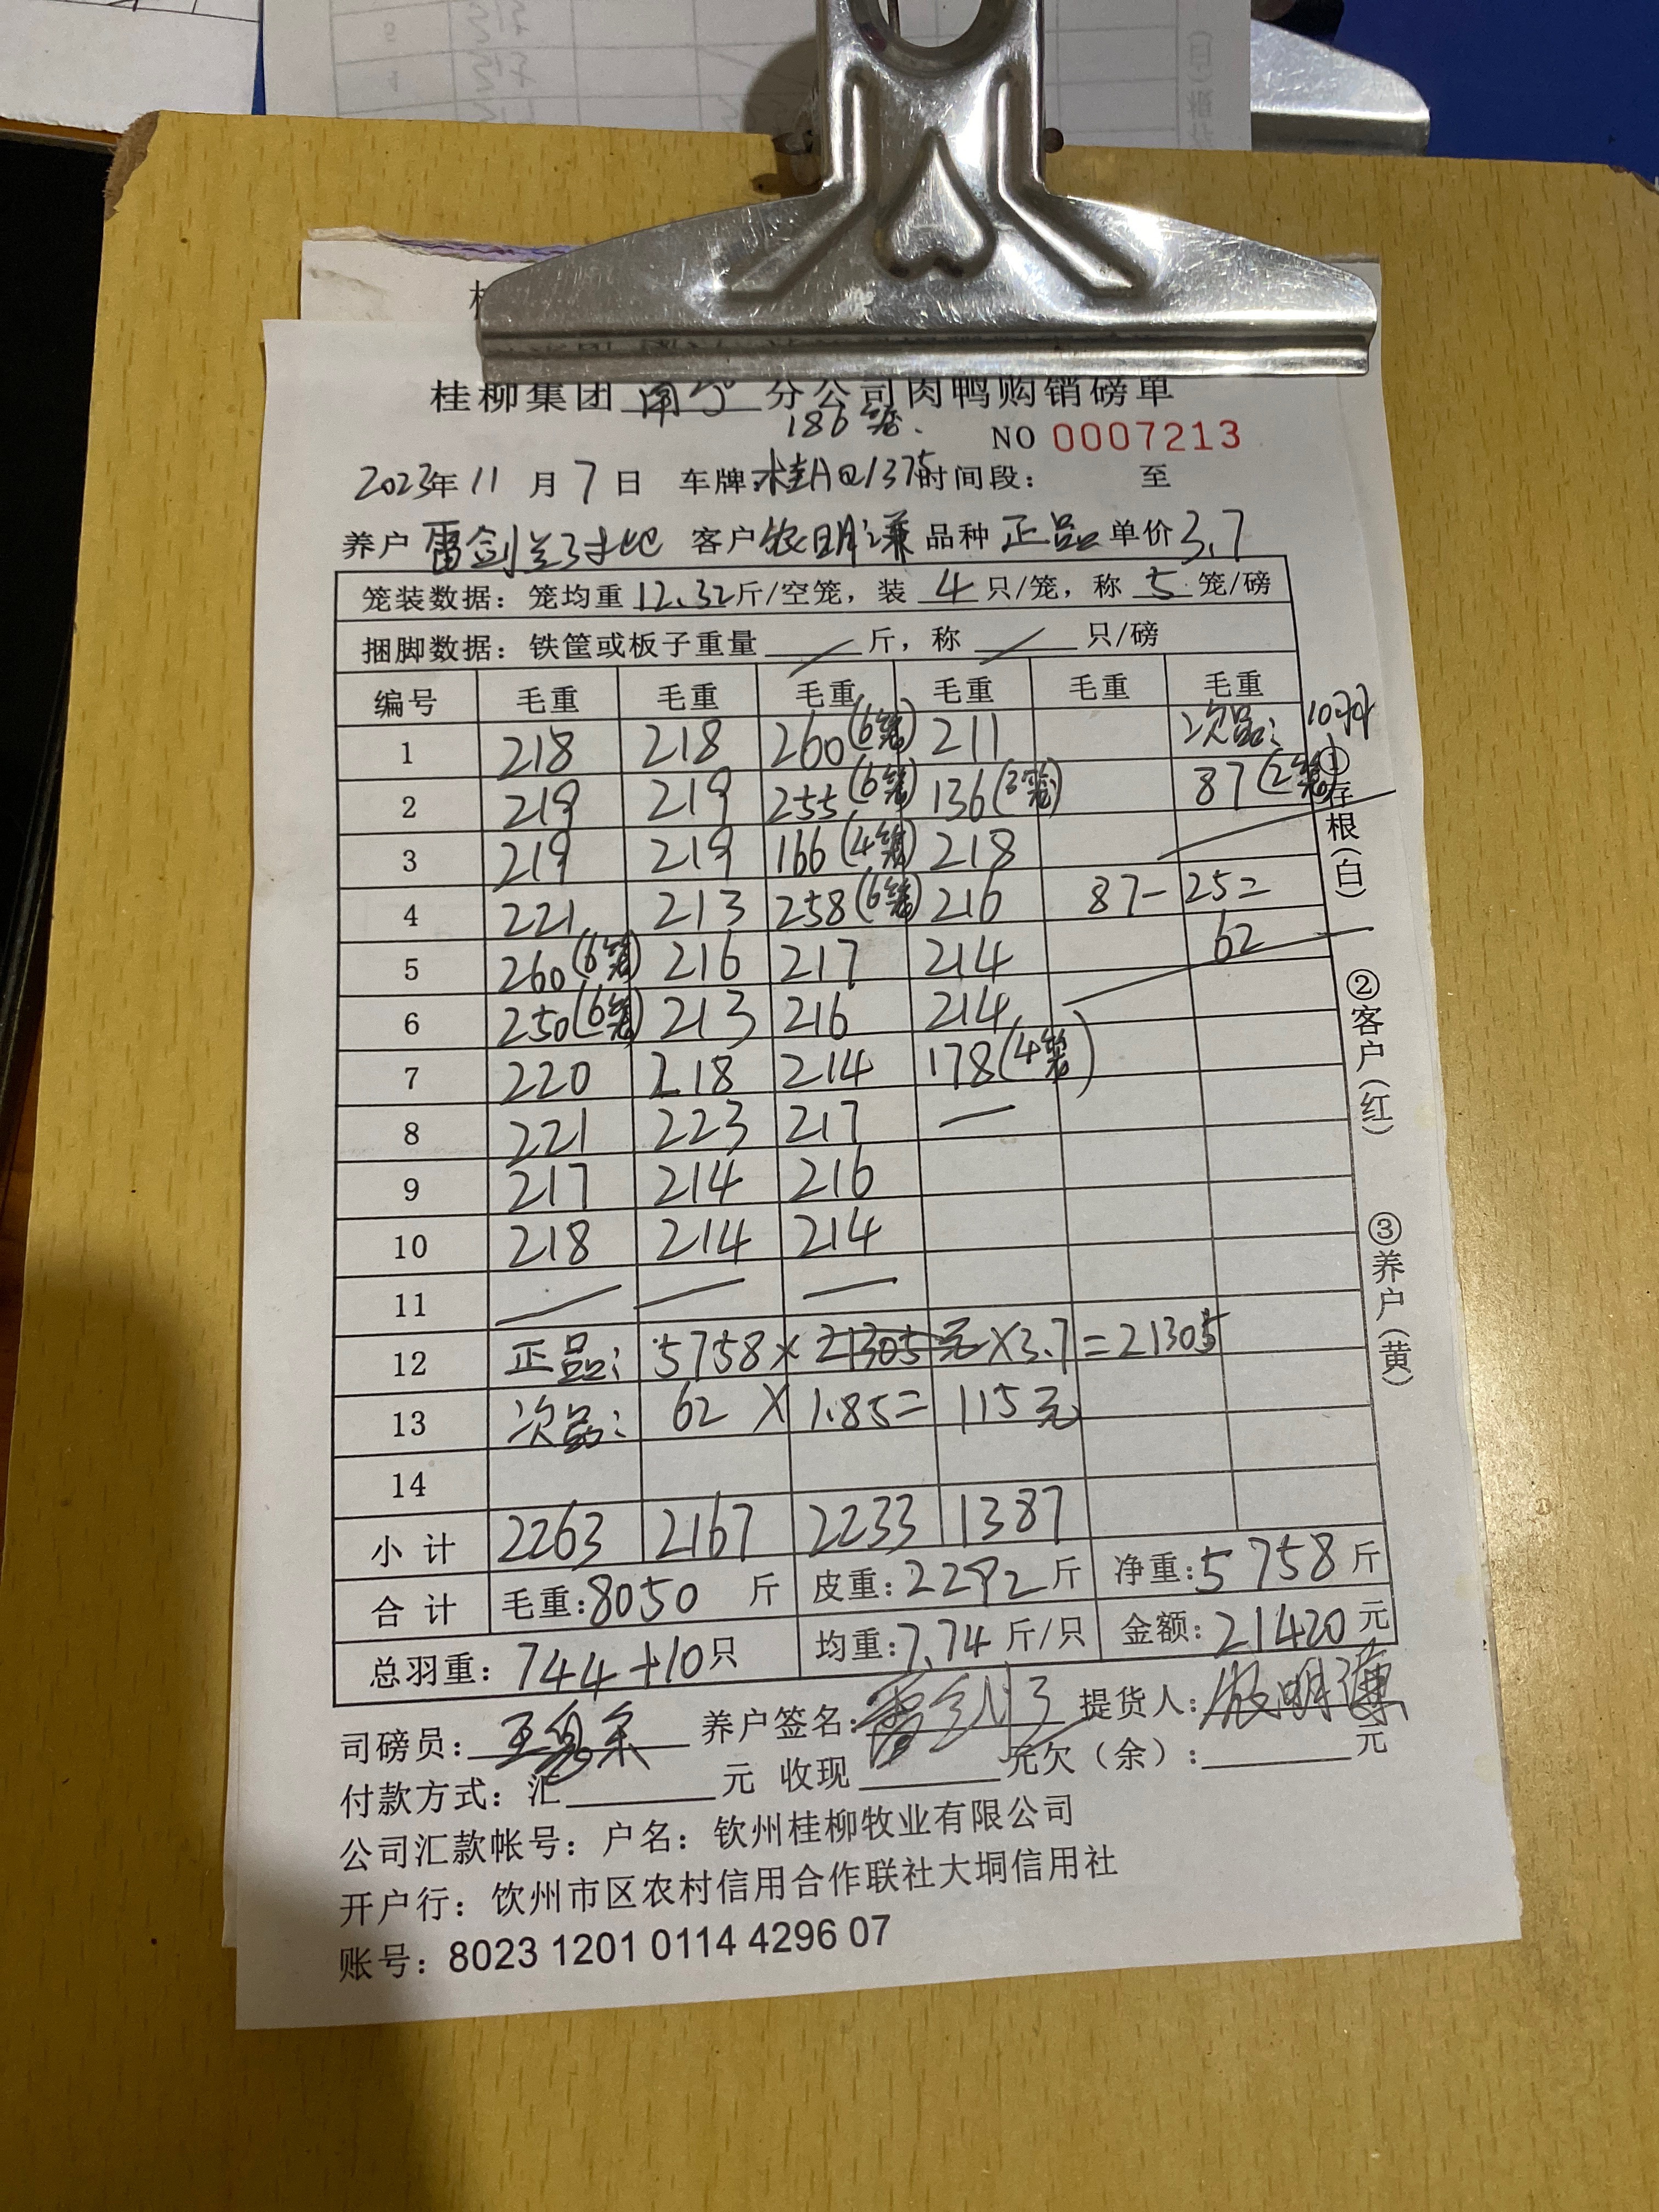 桂柳集团 南宁 分公司肉鸭购销磅单
186笼.
NO 0007213
2023年 11 月 7 日 车牌:桂A 1375 时间段: 至
养户 雷剑 客户 农明谦 品种 正品 单价 3.7
笼装数据: 笼均重 12.32 斤/空笼, 装 4 只/笼, 称 5 笼/磅
捆脚数据: 铁筐或板子重量 / 斤, 称 / 只/磅
编号 毛重 毛重 毛重 毛重 毛重 毛重
1 218 218 260(6笼) 211 次品: 10只
2 219 219 255(6笼) 136(3笼) 87(2笼)
3 219 219 166(4笼) 218
4 221 213 258(6笼) 216 87-25=
5 260(6笼) 216 217 214 62
6 250(6笼) 213 216 214
7 220 218 214 178(4笼)
8 221 223 217 —
9 217 214 216
10 218 214 214
11 — — —
12 正品: 5758× 21305元 ×3.7=21305
13 次品: 62 × 1.85= 115元
14
小计 2263 2167 2233 1387
合计 毛重:8050 斤 皮重:2292斤 净重:5758斤
总羽重: 744+10只 均重:7.74斤/只 金额:21420元
①存根(白)
②客户(红)
③养户(黄)
司磅员: 养户签名: 提货人: 农明谦
付款方式: 汇 元 收现 元欠(余): 元
公司汇款帐号: 户名: 钦州桂柳牧业有限公司
开户行: 钦州市区农村信用合作联社大垌信用社
账号: 8023 1201 0114 4296 07